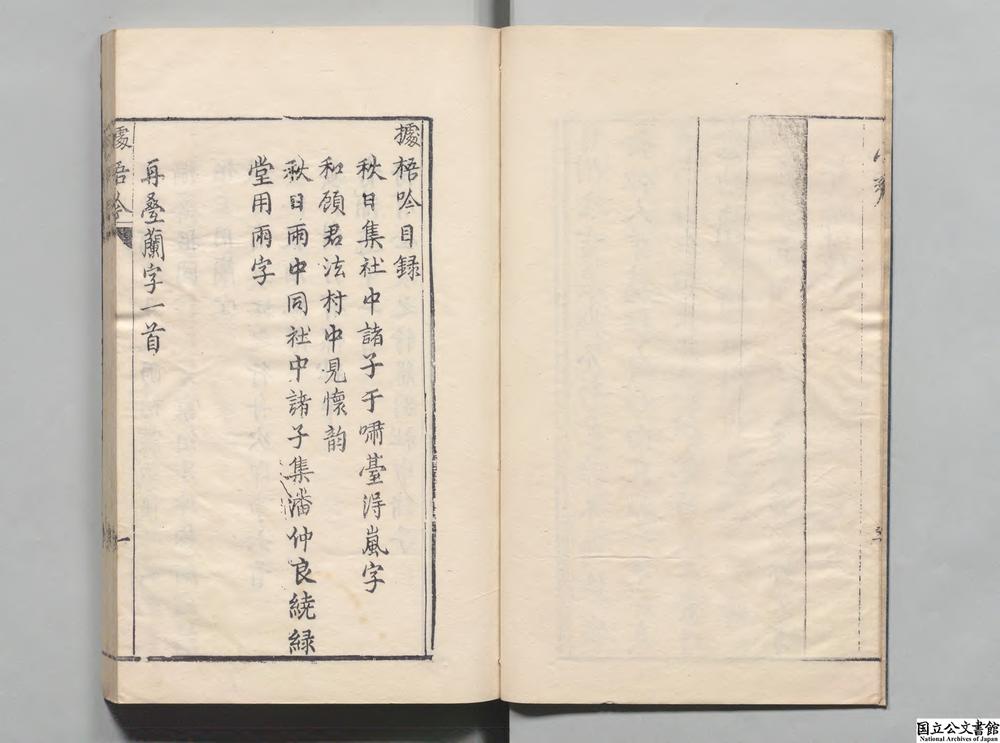 據梧吟目録
秋日集社中諸子于嘯臺得嵐字
和顧君法村中見懷韵
秋日雨中同社中諸子集潘仲良繞緑
堂用雨字
再疊蘭字一首
據梧吟
一
国立公文書館
National Archives of Japan